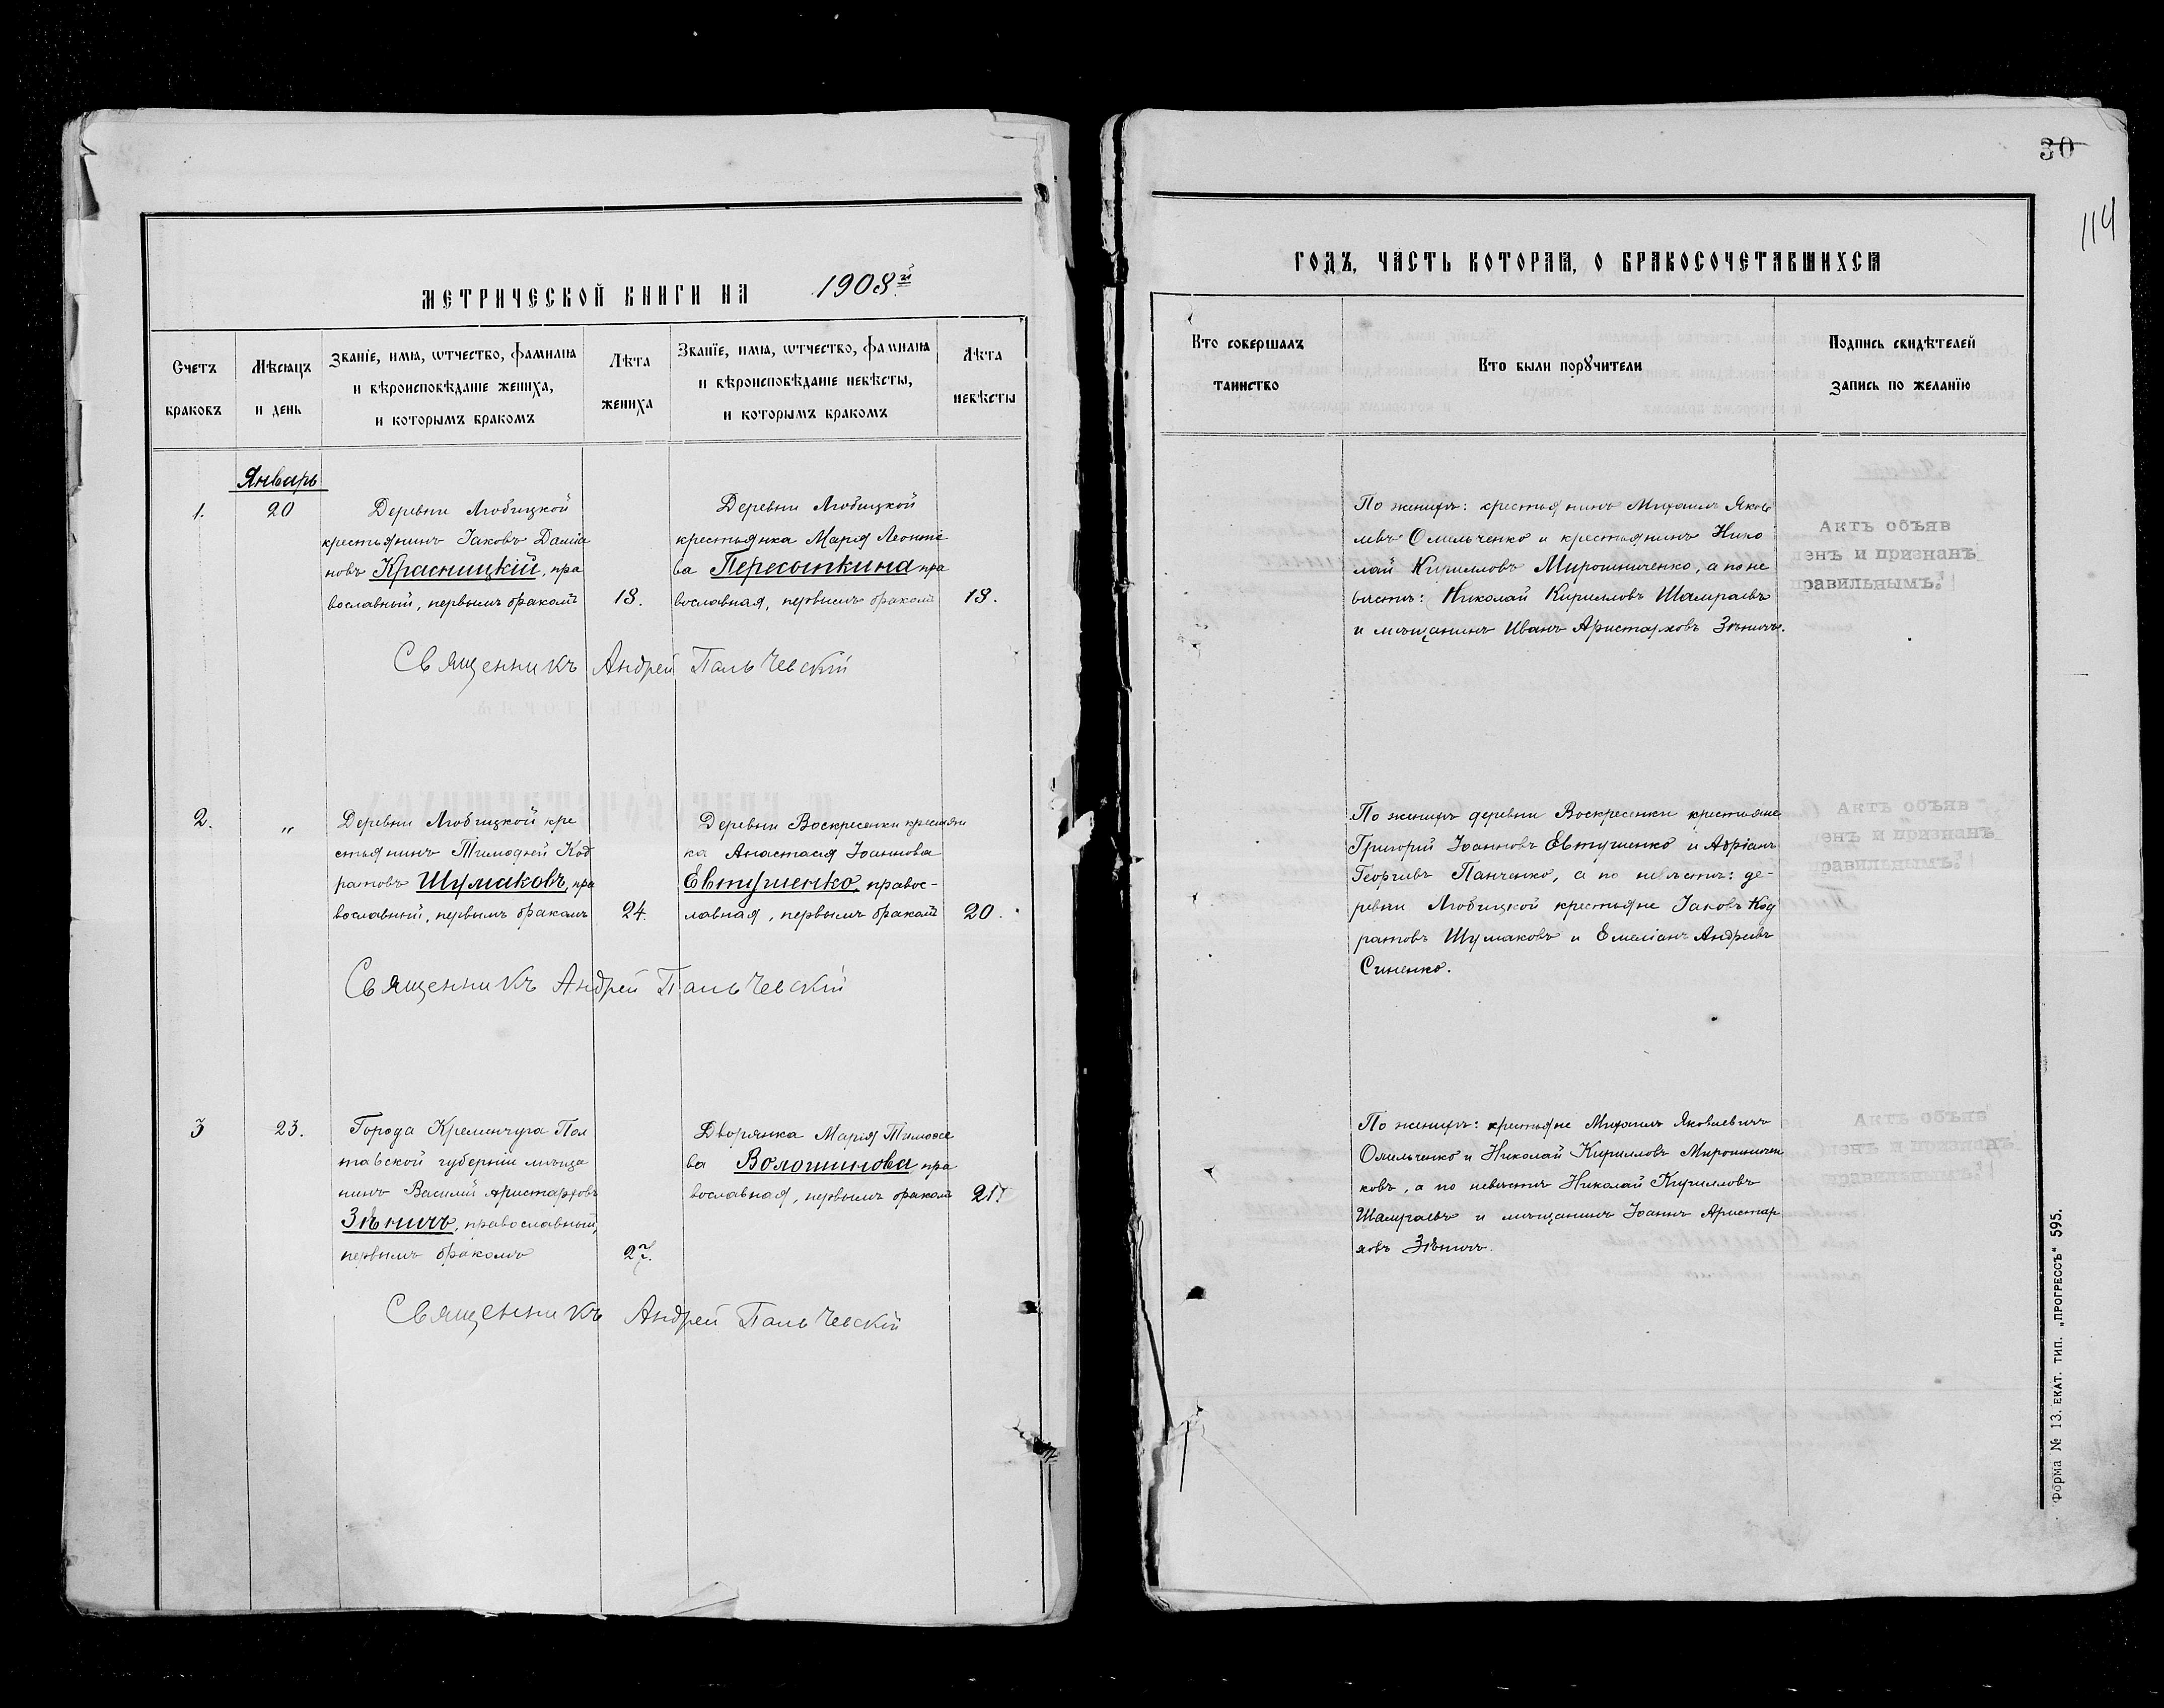 30
114
МЕТРИЧЕСКОЙ КНИГИ НА 1908й
ГОДЪ, ЧАСТЬ ВТОРАЯ, О БРАКОСОЧЕТАВШИХСЯ
Счетъ
браковъ
Мѣсяцъ
и день
Званіе, имя, ѡтчество, фамилія
и вѣроисповѣданіе жениха,
и которымъ бракомъ
Лѣта
жениха
Званіе, имя, ѡтчество, фамилія
и вѣроисповѣданіе невѣсты,
и которымъ бракомъ
Лѣта
невѣсты
Кто совершалъ
таинство
Кто были порꙋчители
Подпись свидѣтелей
запись по желанію
Январь
1.
20
Деревни Любицкой
крестьянинъ Іаковъ Даміа
новъ Красницкій, пра
вославный, первымъ бракомъ
18.
Деревни Любицкой
крестьянка Марія Леонтіе
ва Пересыпкина пра
вославная, первымъ бракомъ
18.
По женихѣ: крестьянинъ Михаилъ Яков
левъ Омельченко и крестьянинъ Нико
лай Кирилловъ Мирошниченко, а по не
вѣстѣ: Николай Кирилловъ Шамраевъ
и мѣщанинъ Иванъ Аристарховъ Зѣничъ.
Актъ объяв
ленъ и признанъ
правильнымъ.
Священникъ Андрей Пальчевскій
2.
„
Деревни Любицкой кре
стьянинъ Тимофей Код
ратовъ Шумаковъ, пра
вославный, первымъ бракомъ
24.
Деревни Воскресенки крестьян
ка Анастасія Іоаннова
Евтушенко, правос-
лавная, первымъ бракомъ
20.
По женихѣ деревни Воскресенки крестьяне
Григорій Іоанновъ Евтушенко и Адріанъ
Георгіевъ Панченко, а по невѣстѣ: де-
ревни Любицкой крестьяне Іаковъ Код
ратовъ Шумаковъ и Емеліанъ Андреевъ
Синенко.
Актъ объяв
ленъ и признанъ
правильнымъ.
Священникъ Андрей Пальчевскій
3
23.
Города Кременчуга Пол
тавской губерніи мѣща
нинъ Василій Аристарховъ
Зѣничъ, православный,
первымъ бракомъ
27.
Дворянка Марія Тимофее
ва Волошинова, пра
вославная, первымъ бракомъ
21.
По женихѣ: крестьяне Михаилъ Яковлевичъ
Омельченко и Николай Кирилловъ Мирошничен
ковъ, а по невѣстѣ Николай Кирилловъ
Шамраевъ и мѣщанинъ Іоаннъ Аристар
ховъ Зѣничъ.
Актъ объяв
ленъ и признанъ
правильнымъ.
Священникъ Андрей Пальчевскій
Форма № 13. ЕКАТ. ТИП. „ПРОГРЕССЪ" 595.